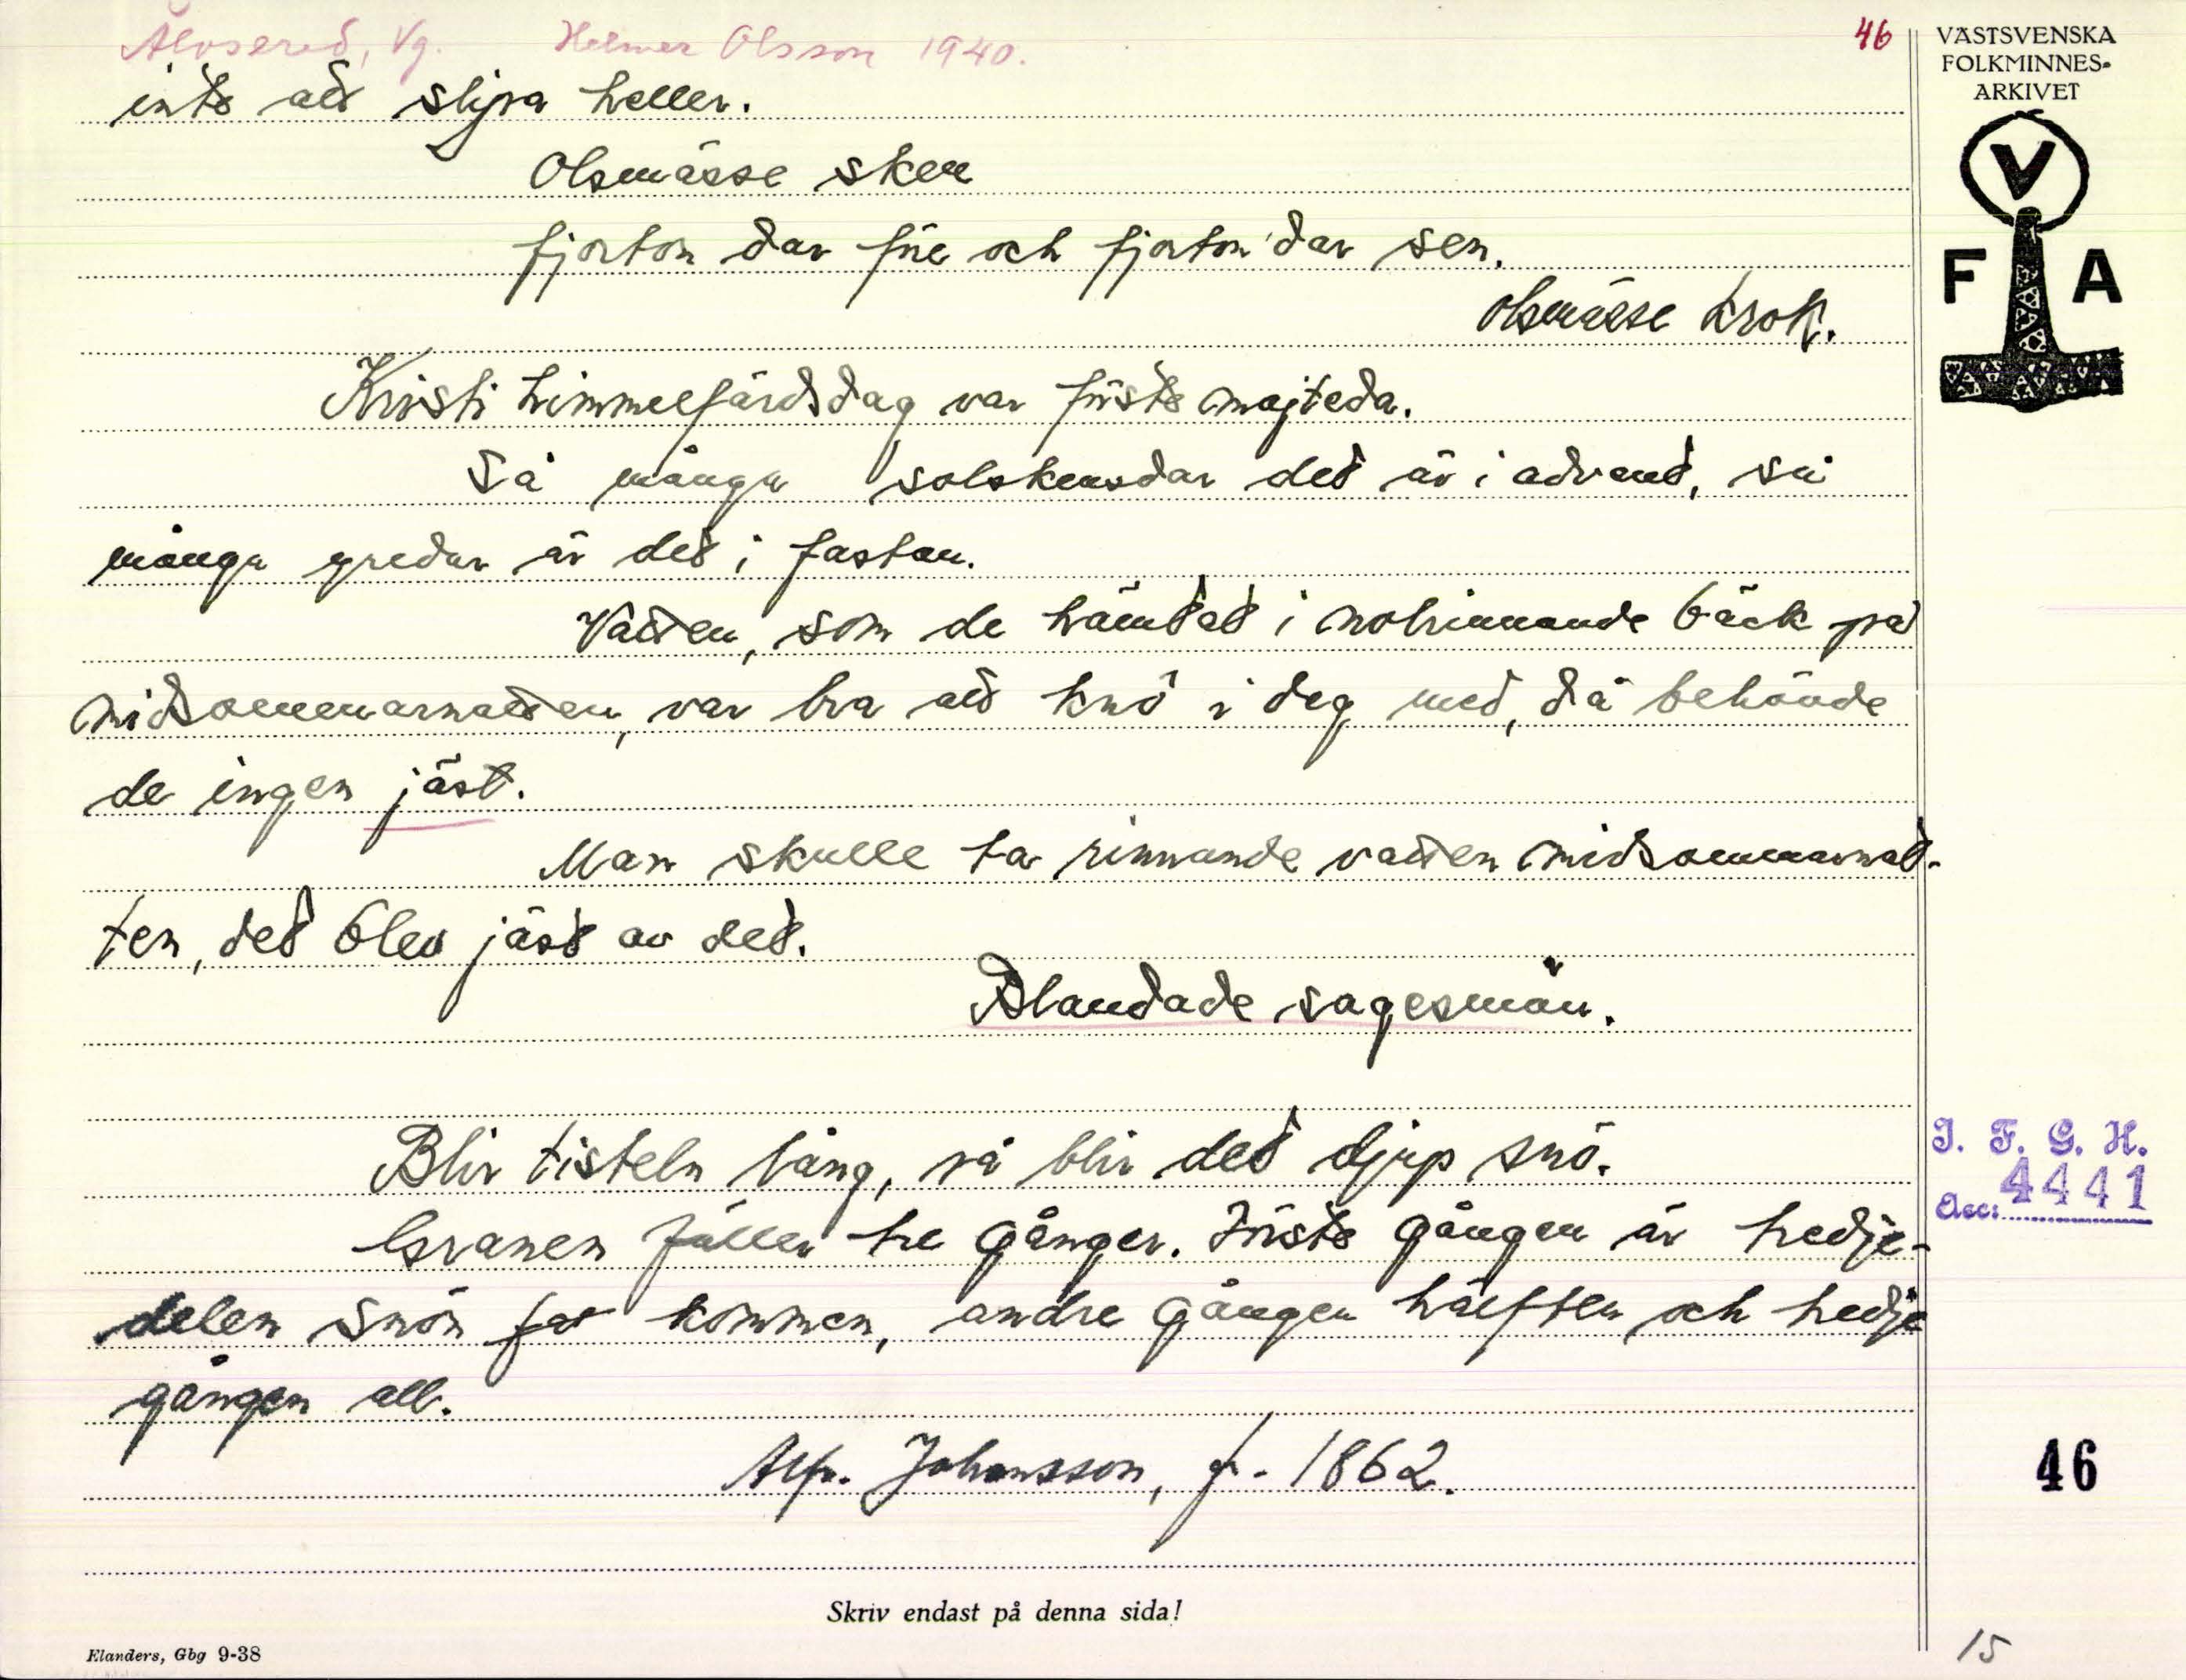 Älvsered, Vg. Helmer Olsson 1940. 46
VÄSTSVENSKA
FOLKMINNES-
ARKIVET
V
F A
inte att slipa heller.
Olsmässe sken
fjorton dar före och fjorton dar sen.
Olsmässe krok.
Kristi himmelfärdsdag var första majteda.
Så många solskensdar det är i advent, så
många gredar är det i fastan.
Vatten, som de hämtat i norrinnande bäck på
midsommarnatten, var bra att knö i deg med, då behövde
de ingen jäst.
Man skulle ta rinnande vatten midsommarnat-
ten, det blev jäst av det.
Blandade sagesmän.
Blir tisteln lång, så blir det djup snö.
Granen fäller tre gånger. Första gången är tredje-
delen snön kommen, andre gången hälften och tredje
gången all.
Alfr. Johansson, f. 1862.
I. F. G. H.
Acc: 4441
46
Skriv endast på denna sida!
Elanders, Gbg 9-38
15